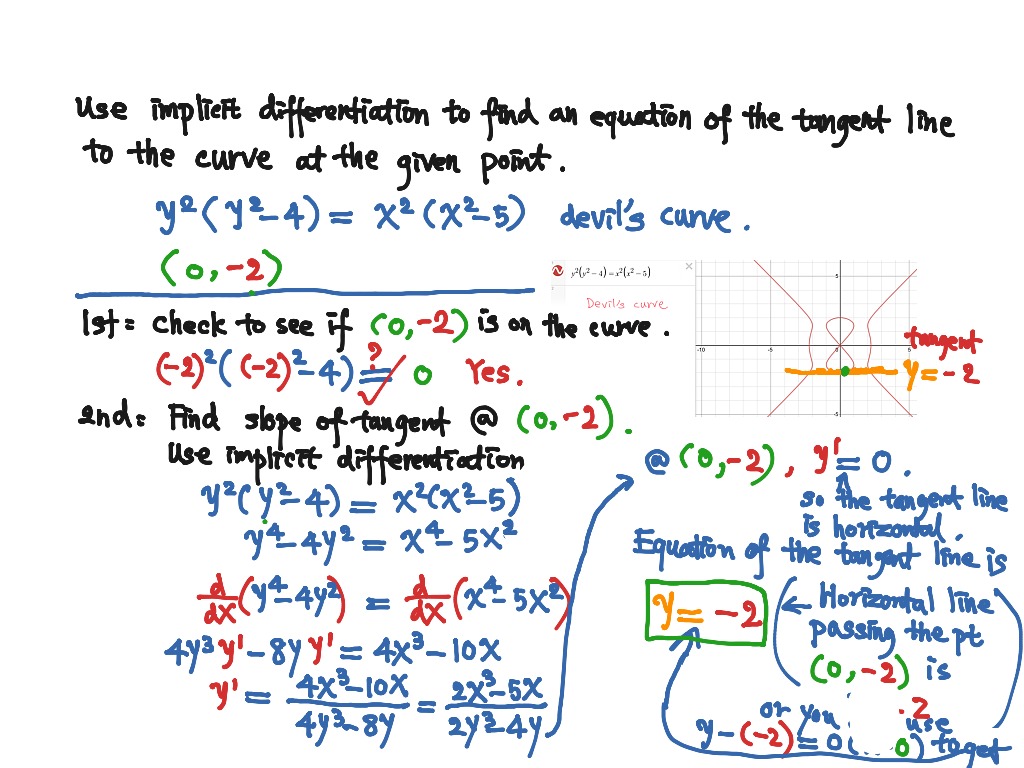 Use implicit differentiation to find an equation of the tangent line
to the curve at the given point.
y²(y²-4) = x²(x²-5) devil's curve.
(0,-2)
y²(y²-4)=x²(x²-5)
×
Devil's curve
5
-10
-5
5
-5
tangent
y = -2
1st = check to see if (0,-2) is on the curve.
(-2)²((-2)²-4) ?= ✓ 0 Yes.
2nd = Find slope of tangent @ (0,-2).
Use implicit differentiation
y²(y²-4) = x²(x²-5)
y⁴-4y² = x⁴-5x²
d/dx(y⁴-4y²) = d/dx(x⁴-5x²)
4y³y'-8yy' = 4x³-10x
y' = (4x³-10x)/(4y³-8y) = (2x³-5x)/(2y³-4y)
@ (0,-2), y' = 0.
so the tangent line
is horizontal.
Equation of the tangent line is
y = -2
← Horizontal line
passing the pt
(0,-2) is
. 2
or you use
y-(-2) = 0( 0) to get